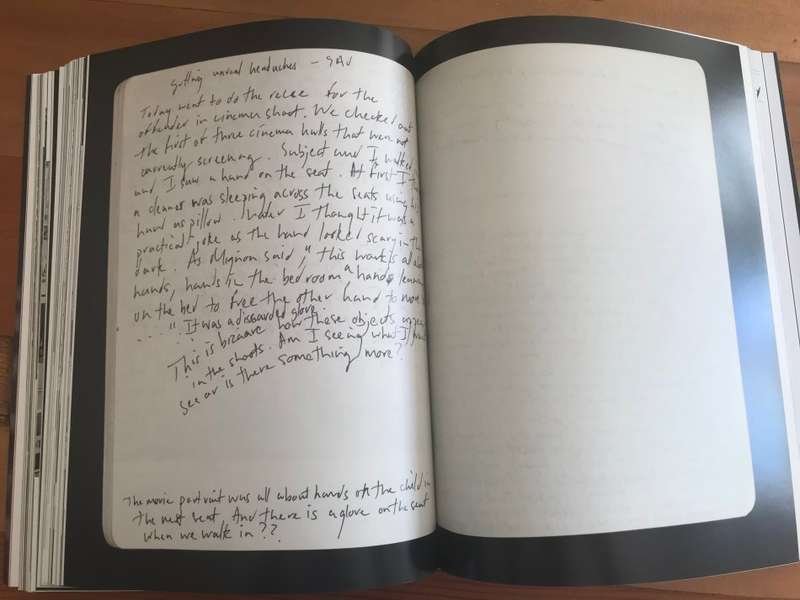 getting unreal headaches –
Today went to do the recce for the
offender in cinema shoot. We checked out
the first of three cinema halls that were not
currently screening. Subject and I walked
and I saw a hand on the seat. At first I
a cleaner was sleeping across the seats using
hand as pillow. Later I thought it was a
practical joke as the hand looked scary in the
dark. As Mignon said, "this work is all
hands, hands in the bedroom a hand
on the bed to free the other hand to
...." It was a discarded glove.
This is bizaare how these objects appear
in the shoots. Am I seeing what I
see or is there something more?
The movie portrait was all about hands the child in
the next seat. And there is a glove on the seat
when we walk in??